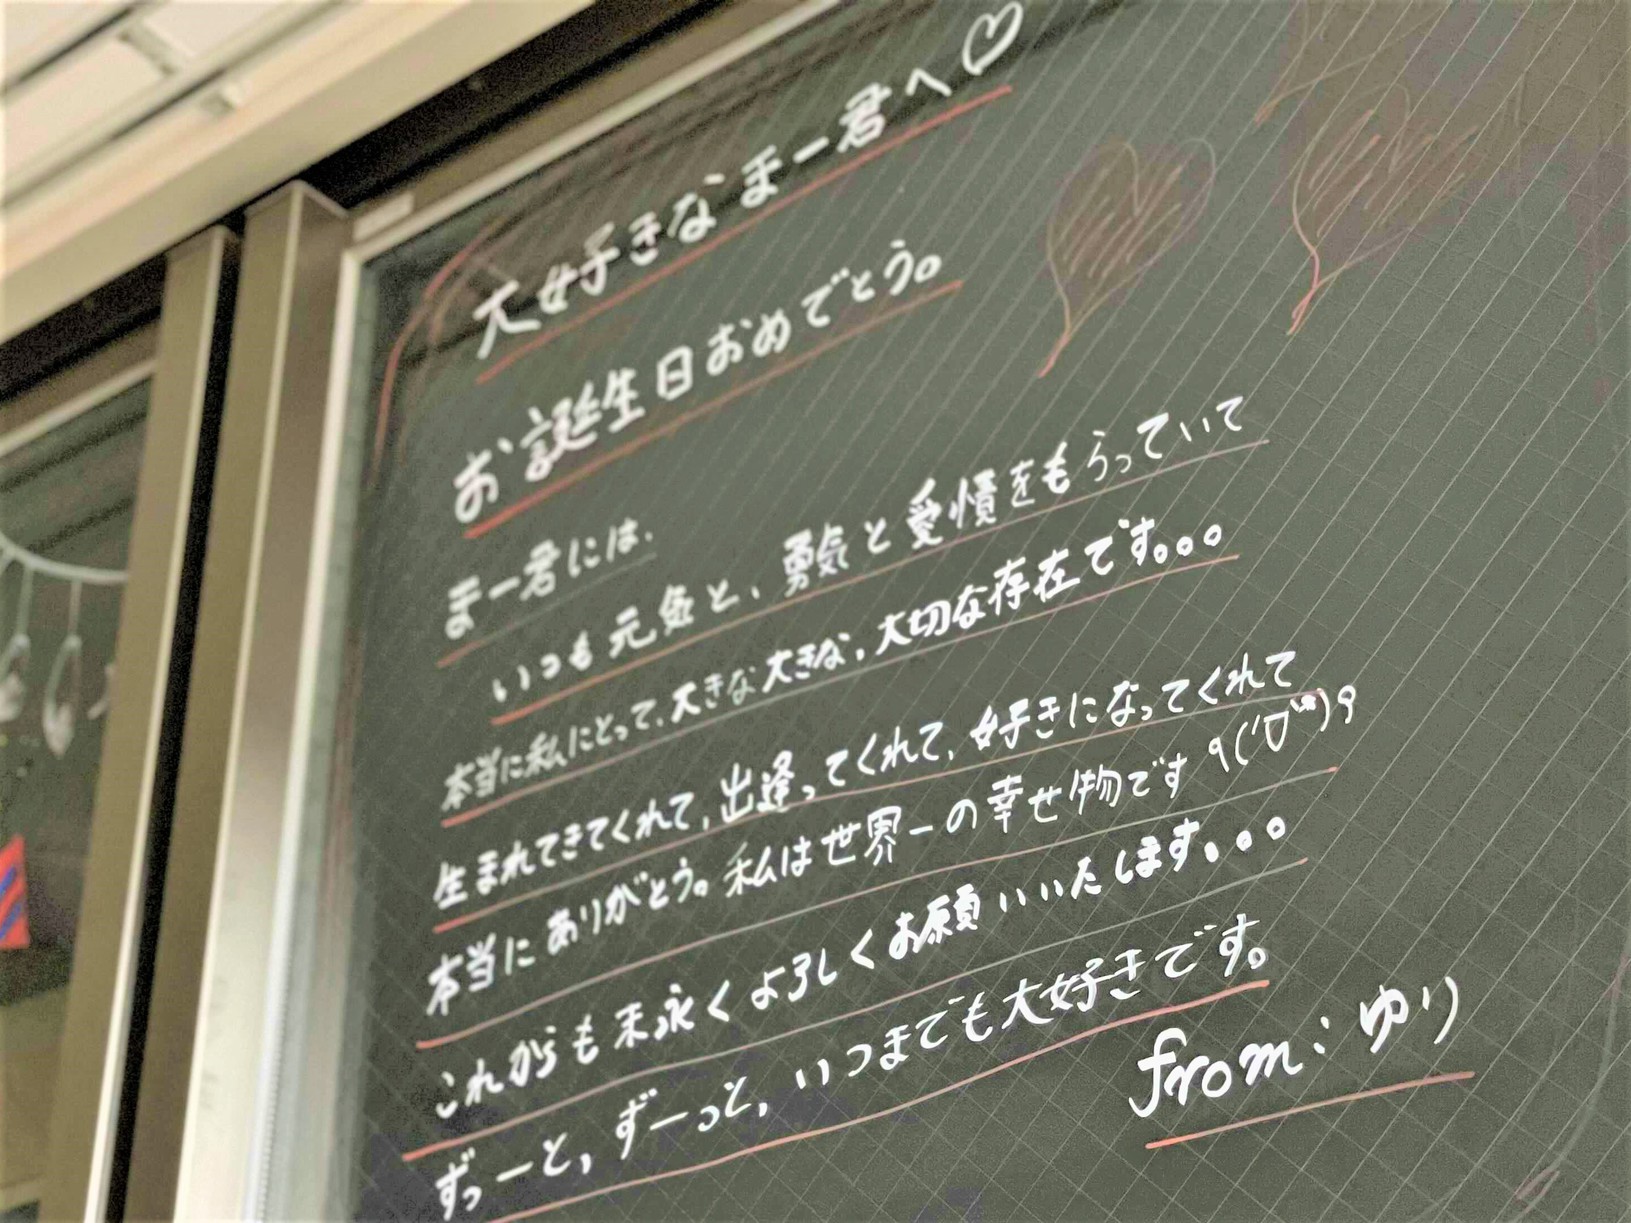 大好きなまー君へ♡
お誕生日おめでとう。
まー君には、
いつも元気と、勇気と愛情をもらっていて
本当に私にとって、大きな大きな、大切な存在です。。。
生まれてきてくれて、出逢ってくれて、好きになってくれて
本当にありがとう。私は世界一の幸せ物です
これからも末永くよろしくお願いいたします。。。
ずっーと、ずーっと、いつまでも大好きです。
from:ゆり